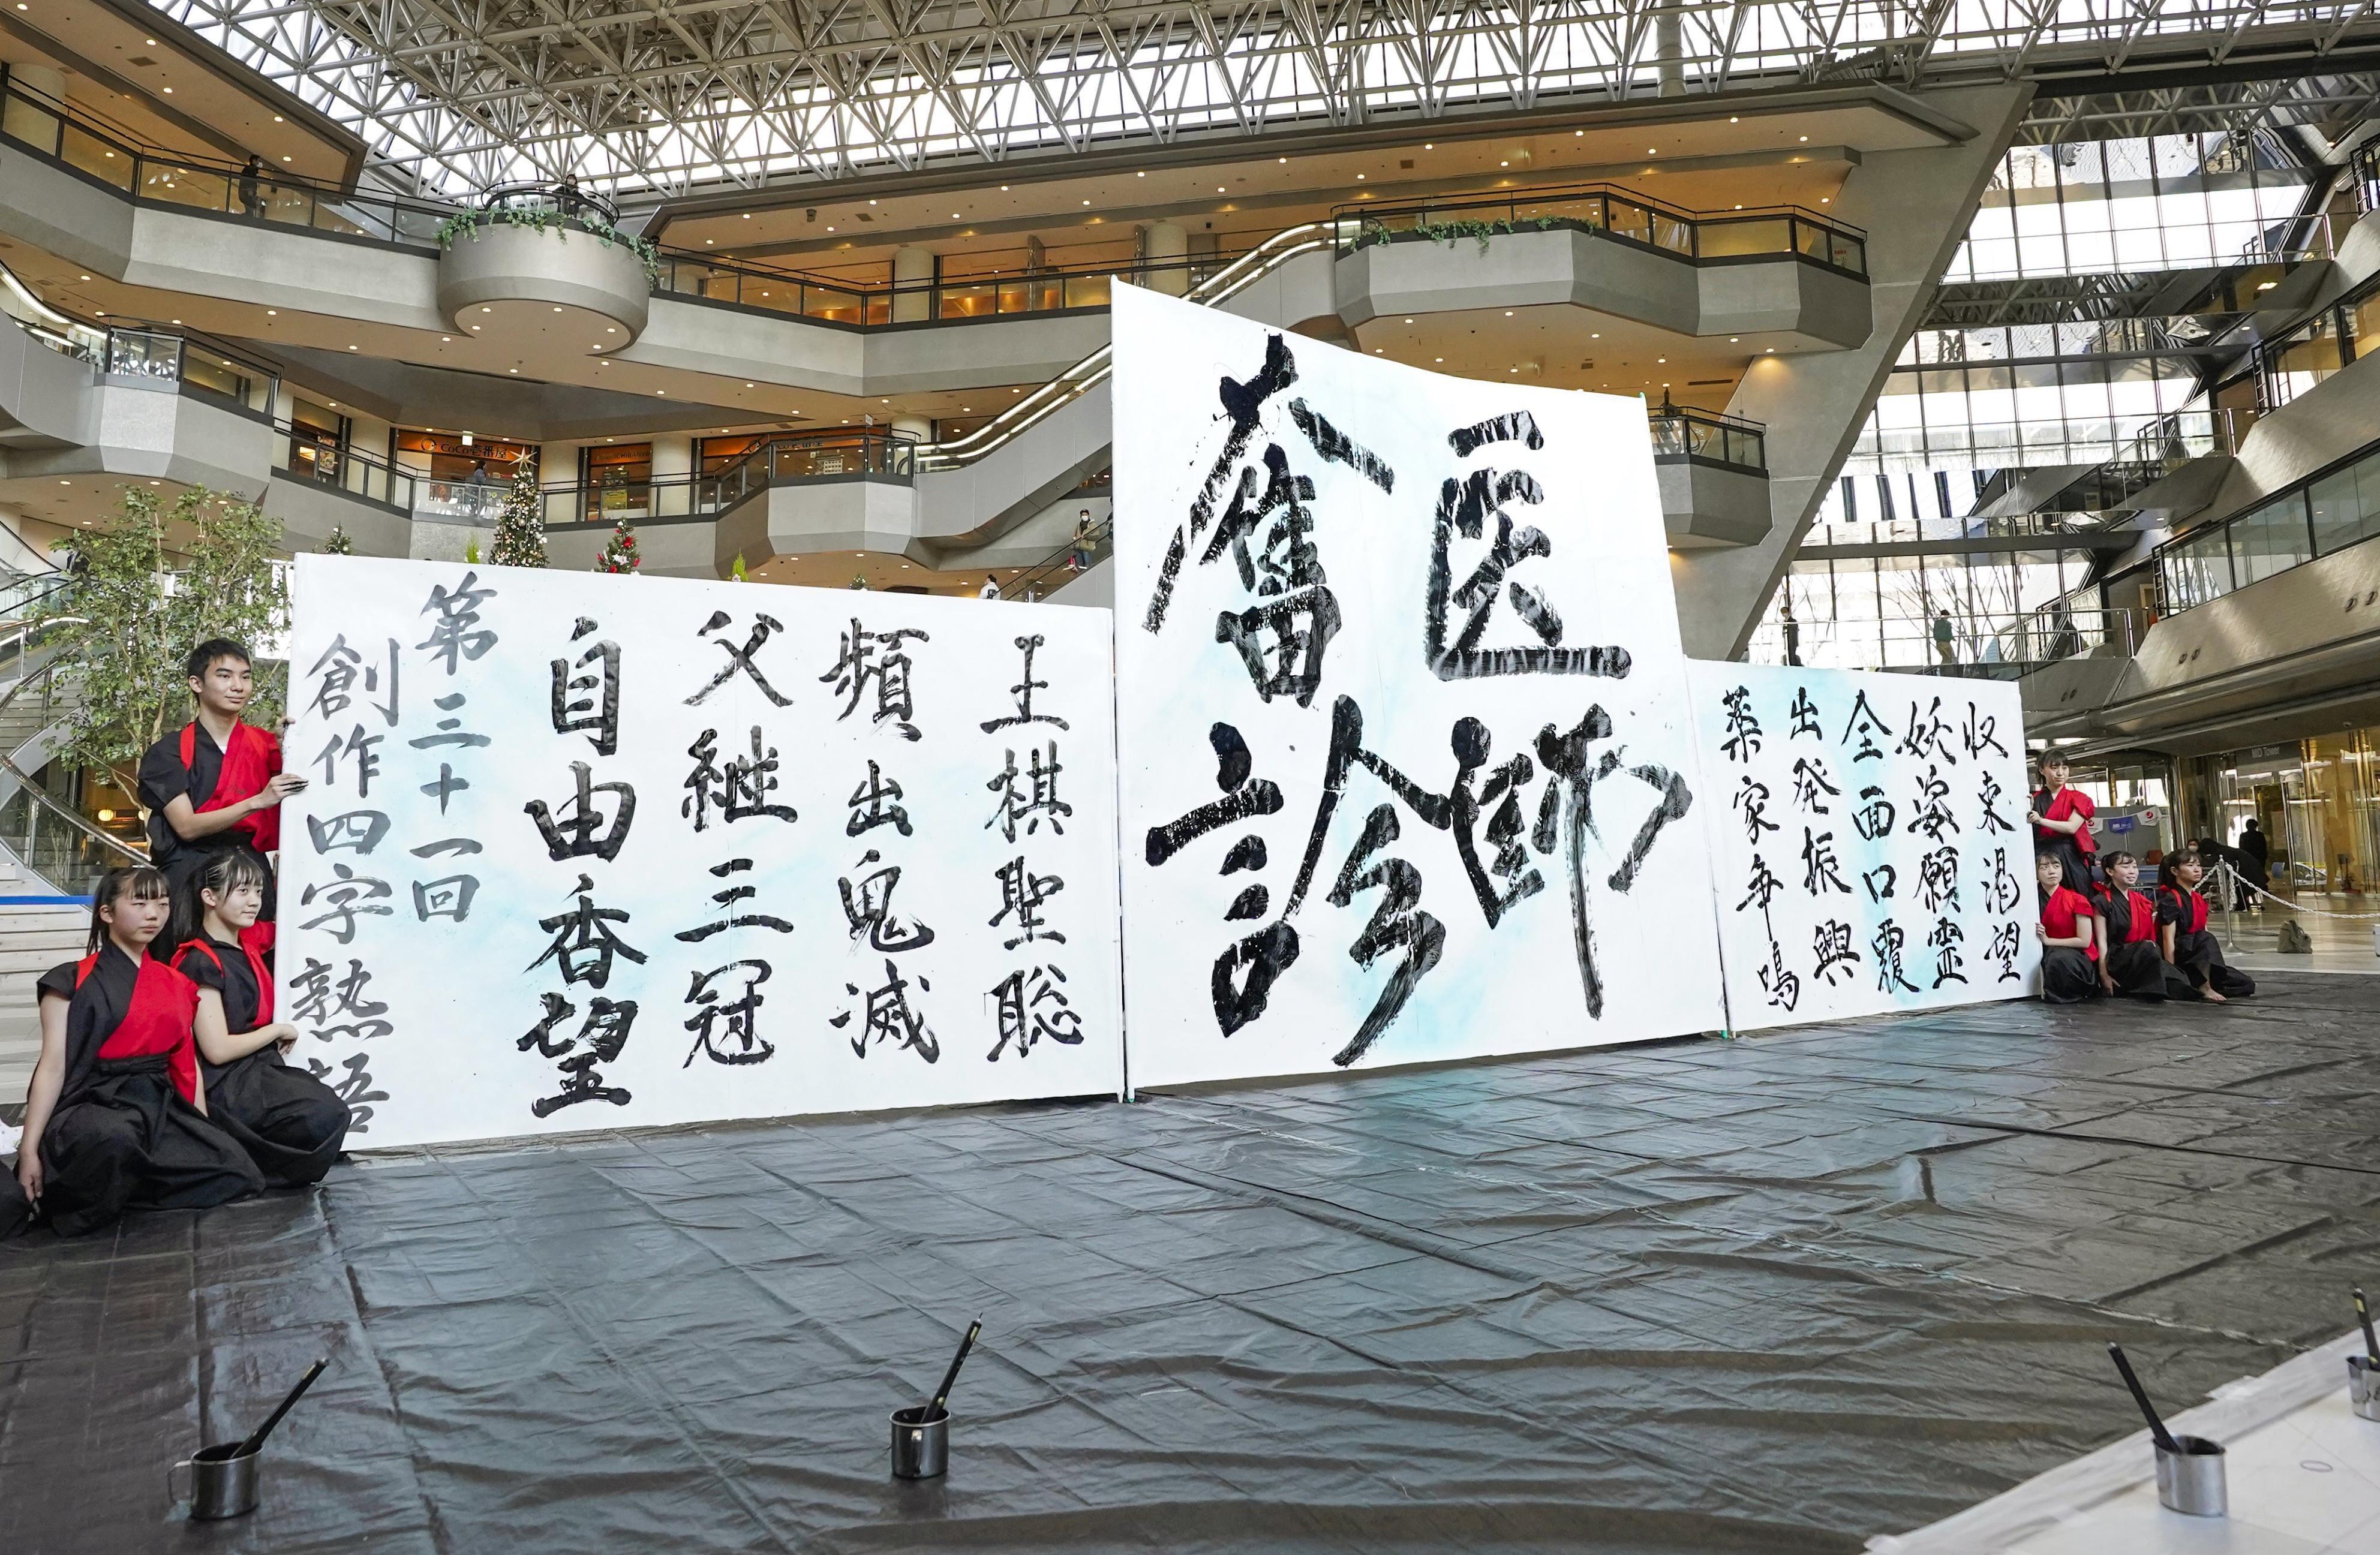 収束渇望
妖姿願霊
全面口覆
出発振興
薬家争鳴
医師
奮診
王棋聖聡
頻出鬼滅
父継三冠
自由香望
第三十一回
創作四字熟語
CoCo壱番屋